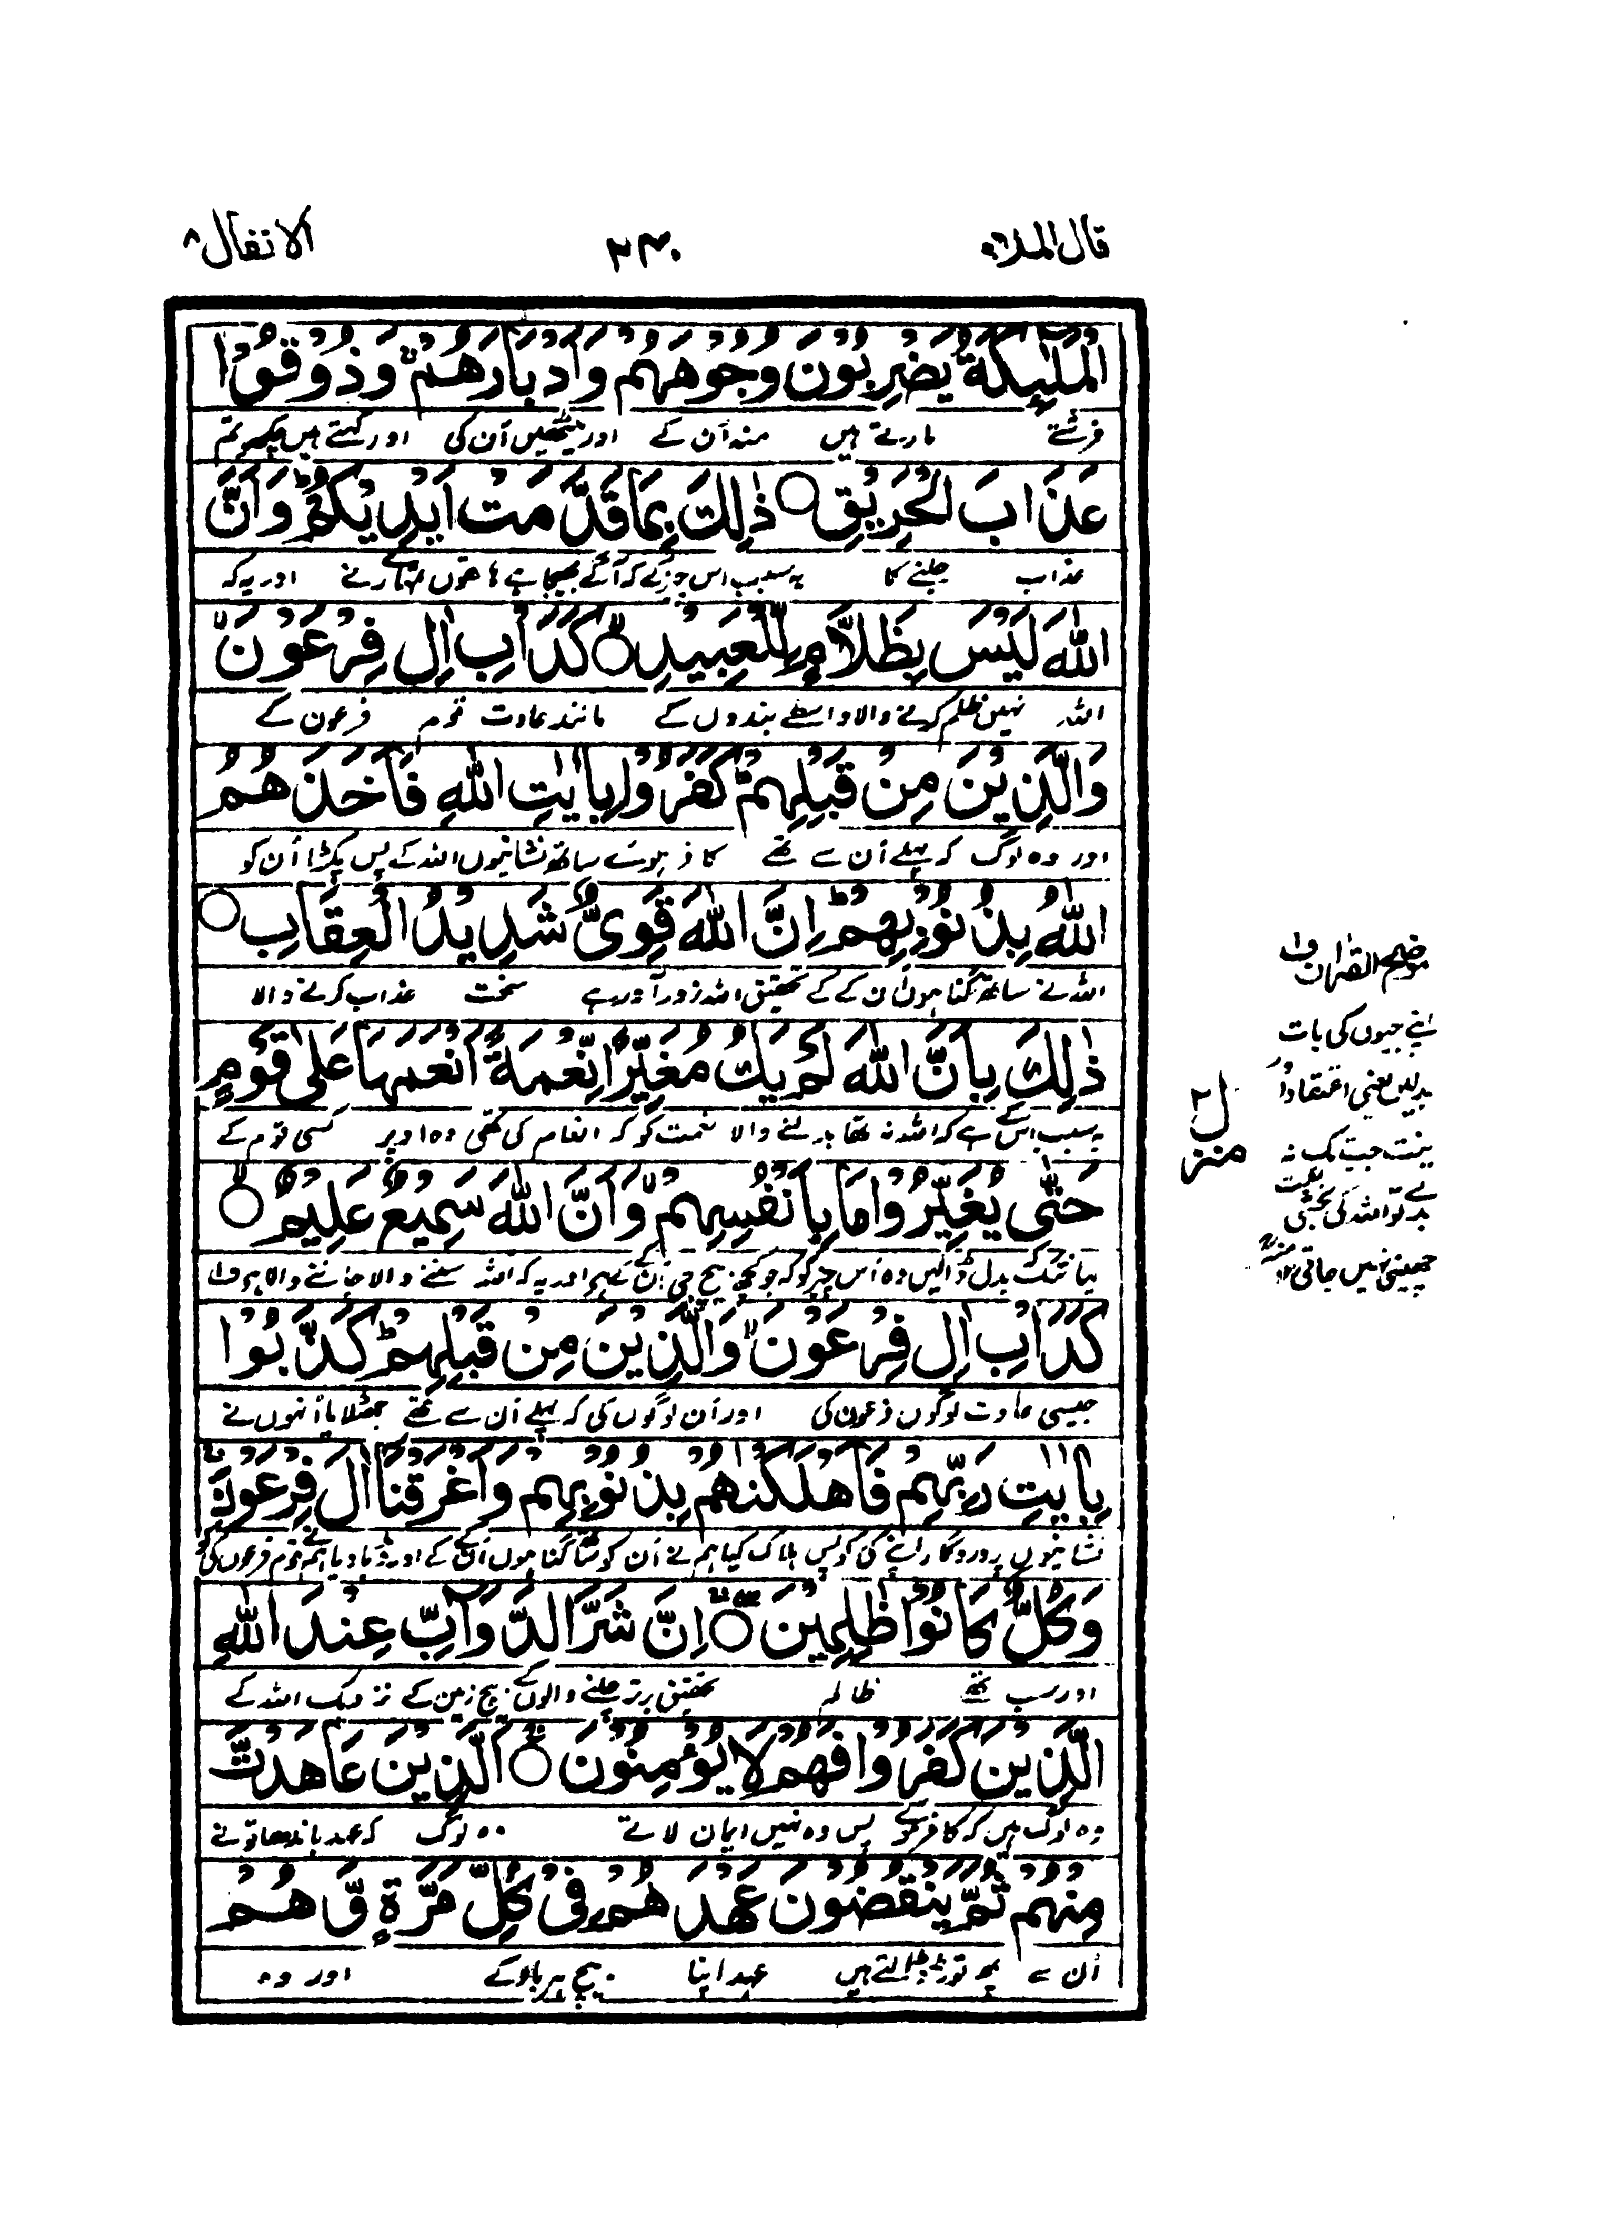 قال الملا ۹
۲۳۰
الانفال ۸
الْمَلٰٓئِكَةُ يَضْرِبُوْنَ وُجُوْهَهُمْ وَاَدْبَارَهُمْ ۚ وَذُوْقُوْا
فرشتے مارتے ہیں منہ اُن کے اور پیٹھیں اُن کی اور کہتے ہیں چکھو تم
عَذَابَ الْحَرِيْقِ ○ ذٰلِكَ بِمَا قَدَّمَتْ اَيْدِيْكُمْ وَاَنَّ
عذاب جلنے کا یہ بسبب اس چیز کے کہ آگے بھیجا ہے ہاتھوں تمہارے نے اور یہ کہ
اللّٰهَ لَيْسَ بِظَلَّامٍ لِّلْعَبِيْدِ ○ كَدَاْبِ اٰلِ فِرْعَوْنَ ۙ
اللہ نہیں ظلم کرنے والا واسطے بندوں کے مانند عادت قوم فرعون کے
وَالَّذِيْنَ مِنْ قَبْلِهِمْ ؕ كَفَرُوْا بِاٰيٰتِ اللّٰهِ فَاَخَذَهُمُ
اور وہ لوگ کہ پہلے اُن سے تھے کافر ہوئے ساتھ نشانیوں اللہ کے پس پکڑا اُن کو
اللّٰهُ بِذُنُوْبِهِمْ ؕ اِنَّ اللّٰهَ قَوِیٌّ شَدِيْدُ الْعِقَابِ ○
اللہ نے ساتھ گناہوں اُن کے کے تحقیق اللہ زور آور ہے سخت عذاب کرنے والا
ذٰلِكَ بِاَنَّ اللّٰهَ لَمْ يَكُ مُغَيِّرًا نِّعْمَةً اَنْعَمَهَا عَلٰى قَوْمٍ
یہ بسبب اس کے ہے کہ اللہ نہ تھا بدلنے والا نعمت کو کہ انعام کی تھی وہ اوپر کسی قوم کے
حَتّٰى يُغَيِّرُوْا مَا بِاَنْفُسِهِمْ ۙ وَاَنَّ اللّٰهَ سَمِيْعٌ عَلِيْمٌ ○
یہانتک بدل ڈالیں وہ اُس چیز کو کہ جو کچھ بیچ جی اُن کے ہے اور یہ کہ اللہ سننے والا جاننے والا ہے ف۱
كَدَاْبِ اٰلِ فِرْعَوْنَ ۙ وَالَّذِيْنَ مِنْ قَبْلِهِمْ ؕ كَذَّبُوْا
جیسی عادت لوگوں فرعون کی اور اُن لوگوں کی کہ پہلے اُن سے تھے جھٹلایا اُنہوں نے
بِاٰيٰتِ رَبِّهِمْ فَاَهْلَكْنٰهُمْ بِذُنُوْبِهِمْ وَاَغْرَقْنَا اٰلَ فِرْعَوْنَ ۚ
نشانیوں پروردگار اپنے کی کو پس ہلاک کیا ہم نے اُن کو ساتھ گناہوں اُن کے کے اور ڈبا دیا ہم نے قوم فرعون کی کو
وَكُلٌّ كَانُوْا ظٰلِمِيْنَ ○ اِنَّ شَرَّ الدَّوَآبِّ عِنْدَ اللّٰهِ
اور سب تھے ظالم تحقیق بدتر چلنے والوں کے بیچ زمین کے نزدیک اللہ کے
الَّذِيْنَ كَفَرُوْا فَهُمْ لَا يُؤْمِنُوْنَ ○ اَلَّذِيْنَ عَاهَدْتَّ
وہ لوگ ہیں کہ کافر ہوئے پس وہ نہیں ایمان لاتے وہ لوگ کہ عہد باندھا تو نے
مِنْهُمْ ثُمَّ يَنْقُضُوْنَ عَهْدَهُمْ فِیْ كُلِّ مَرَّةٍ وَّهُمْ
اُن سے پھر توڑ ڈالتے ہیں عہد اپنا بیچ ہر بار کے اور وہ
موضح القرآن ف۱
اپنے جیوں کی بات
بدلیں یعنی اعتقاد اور
نیت جب تک نہ
بدلے تو اللہ کی بخشی نعمت
چھینی نہیں جاتی ۱۲ منہ
منزل ۲